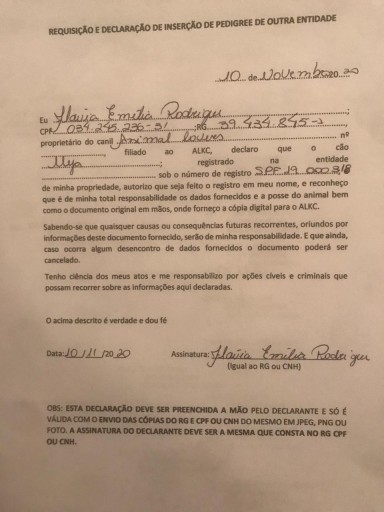 REQUISIÇÃO E DECLARAÇÃO DE INSERÇÃO DE PEDIGREE DE OUTRA ENTIDADE
10 de Novembro 20 20
Eu Flavia Emilia Rodrigues;
CPF 034.245.236-31 RG 39.434.845-2
proprietário do canil Animal Lovers nº
, filiado ao ALKC, declaro que o cão
; registrado na entidade
sob o número de registro SPF 19 000 318
de minha propriedade, autorizo que seja feito o registro em meu nome, e reconheço
que é de minha total responsabilidade os dados fornecidos e a posse do animal bem
como o documento original em mãos, onde forneço a cópia digital para o ALKC.
Sabendo-se que quaisquer causas ou consequências futuras recorrentes, oriundos por
informações deste documento fornecido, serão de minha responsabilidade. E que ainda,
caso ocorra algum desencontro de dados fornecidos o documento poderá ser
cancelado.
Tenho ciência dos meus atos e me responsabilizo por ações cíveis e criminais que
possam recorrer sobre as informações aqui declaradas.
O acima descrito é verdade e dou fé
Data: 10/11/2020 Assinatura: Flavia Emilia Rodrigues
(Igual ao RG ou CNH)
OBS: ESTA DECLARAÇÃO DEVE SER PREENCHIDA A MÃO PELO DECLARANTE E SÓ É
VÁLIDA COM O ENVIO DAS CÓPIAS DO RG E CPF OU CNH DO MESMO EM JPEG, PNG OU
FOTO. A ASSINATURA DO DECLARANTE DEVE SER A MESMA QUE CONSTA NO RG CPF
OU CNH.